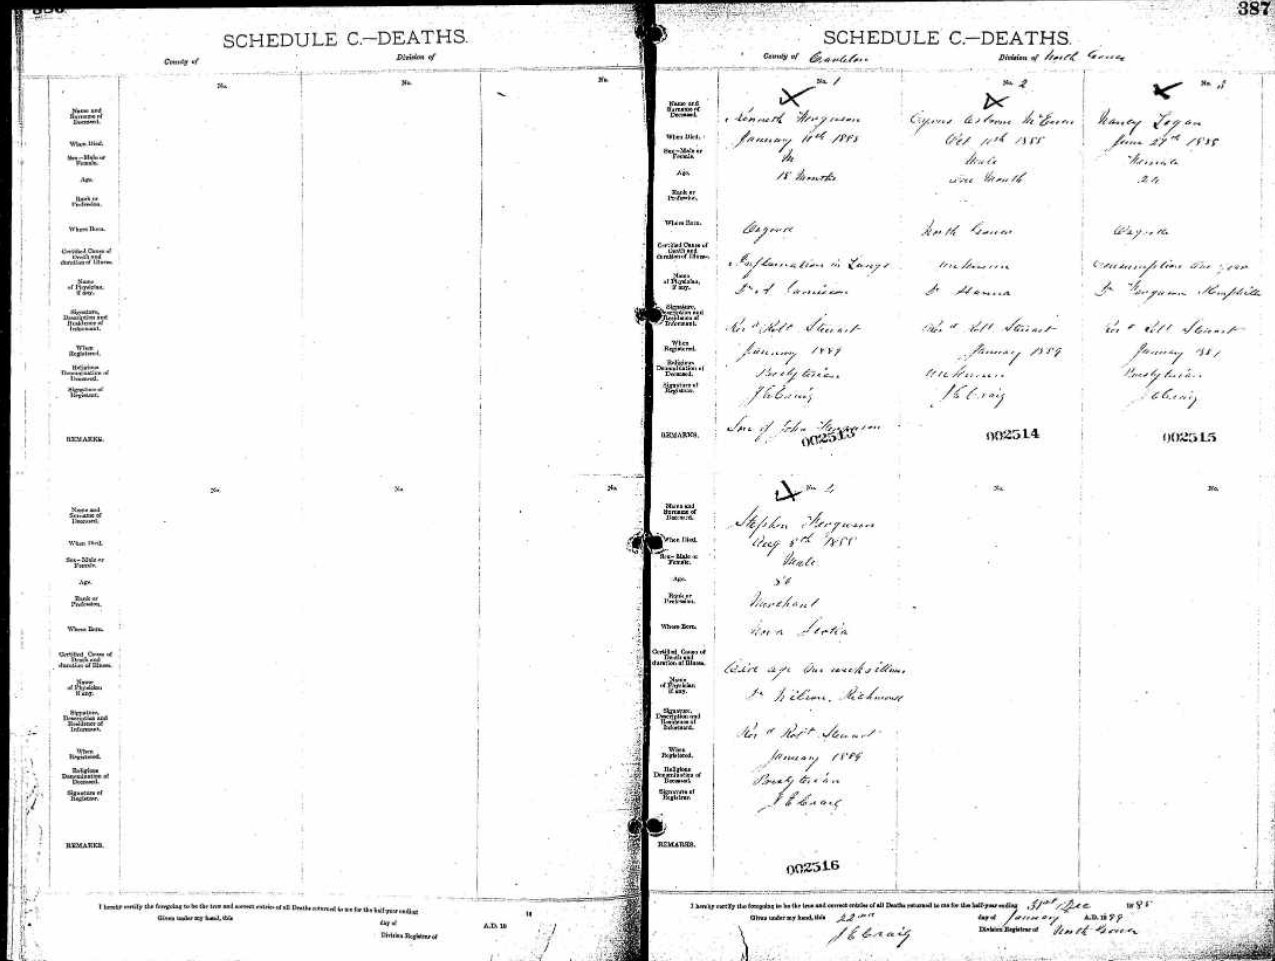 SCHEDULE C.—DEATHS.
County of
Division of
No.
No.
No.
Name and
Surname of
Deceased.
When Died.
Sex—Male or
Female.
Age.
Rank or
Profession.
Where Born.
Certified Cause of
Death and
duration of Illness.
Name
of Physician,
if any.
Signature,
Description and
Residence of
Informant.
When
Registered.
Religious
Denomination of
Deceased.
Signature of
Registrar.
REMARKS.
No.
No.
No.
Name and
Surname of
Deceased.
When Died.
Sex—Male or
Female.
Age.
Rank or
Profession.
Where Born.
Certified Cause of
Death and
duration of Illness.
Name
of Physician
if any.
Signature,
Description and
Residence of
Informant.
When
Registered.
Religious
Denomination of
Deceased.
Signature of
Registrar.
REMARKS.
I hereby certify the foregoing to be the true and correct entries of all Deaths returned to me for the half-year ending 18
Given under my hand, this day of A.D. 18
Division Registrar of
387
SCHEDULE C.—DEATHS.
County of Carleton Division of North Gower
No. 1 No. 2 No. 3
Name and
Surname of
Deceased.
Kenneth Ferguson Cyrus Osborne McEwen Nancy Logan
When Died. January 10th 1888 Oct 10th 1888 June 27th 1888
Sex—Male or
Female.
M Male Female
Age. 18 Months one Month
Rank or
Profession.
Where Born. Osgoode North Gower Osgoode
Certified Cause of
Death and
duration of Illness.
Inflamation in Lungs unknown Consumption One year
Name
of Physician,
if any.
Dr Hanna Dr Ferguson Kemptville
Signature,
Description and
Residence of
Informant.
Revd Robt Stewart Revd Robt Stewart Revd Robt Stewart
When
Registered.
January 1889 January 1889 January
Religious
Denomination of
Deceased.
Presbyterian unknown Presbyterian
Signature of
Registrar.
J E Craig J E Craig J E Craig
REMARKS. Son of John Ferguson
002513 002514 002515
No. 4 No. No.
Name and
Surname of
Deceased.
Stephen Ferguson
When Died. Aug 8th 1888
Sex—Male or
Female.
Male
Age.
Rank or
Profession.
Merchant
Where Born. Nova Scotia
Certified Cause of
Death and
duration of Illness.
One weeks illness
Name
of Physician
if any.
Dr Wilson, Richmond
Signature,
Description and
Residence of
Informant.
Revd Robt Stewart
When
Registered.
January 1889
Religious
Denomination of
Deceased.
Presbyterian
Signature of
Registrar.
J E Craig
REMARKS.
002516
I hereby certify the foregoing to be the true and correct entries of all Deaths returned to me for the half-year ending 31st Dec 1888
Given under my hand, this 22nd day of January A.D. 1889
J E Craig Division Registrar of North Gower